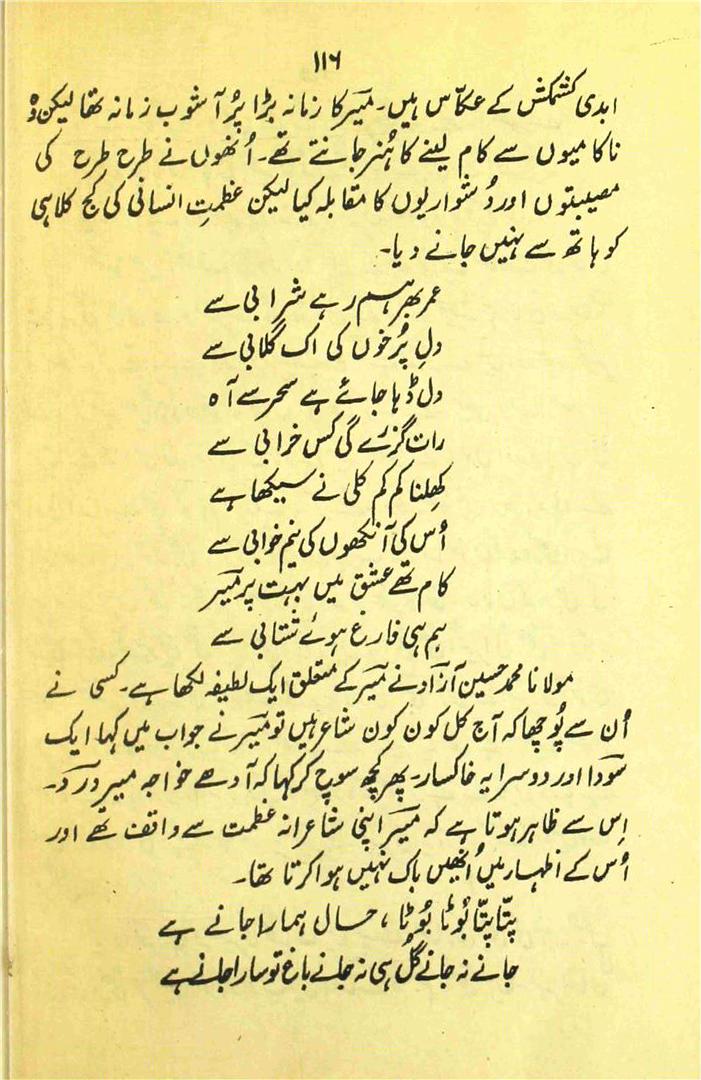 ۱۱۶
ابدی کشمکش کے عکاس ہیں۔ میرؔ کا زمانہ بڑا پُر آشوب زمانہ تھا لیکن وہ
ناکامیوں سے کام لینے کا ہُنر جانتے تھے۔ اُنھوں نے طرح طرح کی
مصیبتوں اور دُشواریوں کا مقابلہ کیا لیکن عظمتِ انسانی کی کج کلاہی
کو ہاتھ سے نہیں جانے دیا۔
عمر بھر ہم رہے شرابی سے
دلِ پُرخوں کی اک گلابی سے
دل ڈہا جائے ہے سحر سے آہ
رات گزرے گی کس خرابی سے
کِھلنا کم کم کلی نے سیکھا ہے
اُس کی آنکھوں کی نیم خوابی سے
کام تھے عشق میں بہت پر میرؔ
ہم ہی فارغ ہوئے شتابی سے
مولانا محمد حسین آزادؔ نے میرؔ کے متعلق ایک لطیفہ لکھا ہے۔ کسی نے
اُن سے پُوچھا کہ آج کل کون کون شاعر ہیں تو میرؔ نے جواب میں کہا ایک
سوداؔ اور دوسرا یہ خاکسار۔ پھر کچھ سوچ کر کہا کہ آدھے خواجہ میر دردؔ۔
اِس سے ظاہر ہوتا ہے کہ میرؔ اپنی شاعرانہ عظمت سے واقف تھے اور
اُس کے اظہار میں اُنھیں باک نہیں ہوا کرتا تھا۔
پتّا پتّا بُوٹا بُوٹا، حال ہمارا جانے ہے
جانے نہ جانے گُل ہی نہ جانے باغ تو سارا جانے ہے